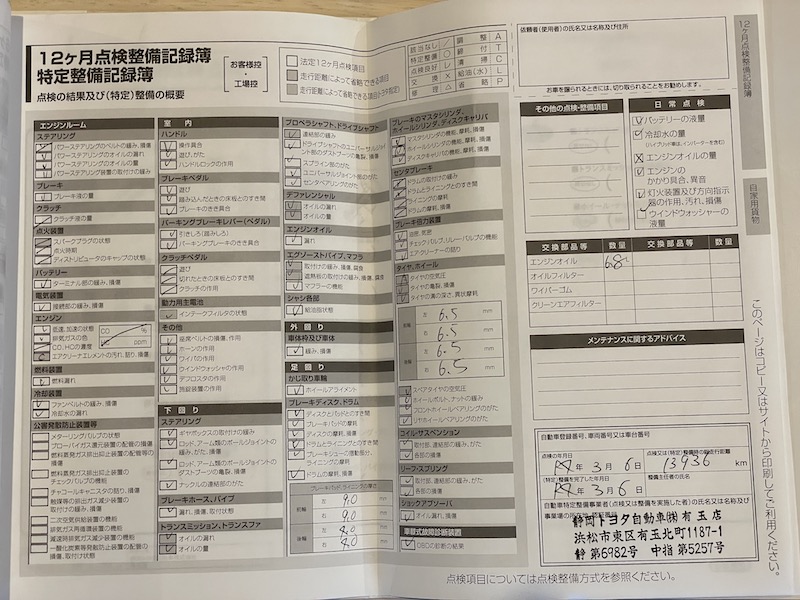 12ヶ月点検整備記録簿
特定整備記録簿
点検の結果及び(特定)整備の概要
お客様控
・
工場控
法定12ヶ月点検項目
走行距離によって省略できる項目
走行距離によって省略できる項目(トヨタ指定)
該当なし / 調整 A
特定整備 ○ 締付 T
点検良好 レ 清掃 C
交換 × 給油(水) L
修理 △ 省略 P
依頼者(使用者)の氏名又は名称及び住所
お車を譲られるときには、切り取られることをお勧めします。
12ヶ月点検整備記録簿
自家用貨物
エンジンルーム
ステアリング
パワーステアリングのベルトの緩み、損傷
パワーステアリングのオイルの漏れ
パワーステアリングのオイルの量
パワーステアリング装置の取付けの緩み
ブレーキ
ブレーキ液の量
クラッチ
クラッチ液の量
点火装置
スパークプラグの状態
点火時期
ディストリビュータのキャップの状態
バッテリー
ターミナル部の緩み、腐食
電気装置
接続部の緩み、損傷
エンジン
低速、加速の状態
排気ガスの色
CO、HCの濃度
CO %
HC ppm
エアクリーナエレメントの汚れ、詰り、損傷
燃料装置
燃料漏れ
冷却装置
ファンベルトの緩み、損傷
冷却水の漏れ
公害発散防止装置等
メターリングバルブの状態
ブローバイガス還元装置の配管の損傷
燃料蒸発ガス排出抑止装置の配管等の損傷
燃料蒸発ガス排出抑止装置のチェックバルブの機能
チャコールキャニスタの詰り、損傷
触媒等の排出ガス減少装置の取付けの緩み、損傷
二次空気供給装置の機能
排気ガス再循環装置の機能
減速時排気ガス減少装置の機能
一酸化炭素等発散防止装置の配管の損傷、取付け状態
室内
ハンドル
操作具合
遊び、がた
ハンドルロックの作用
ブレーキペダル
遊び
踏み込んだときの床板とのすき間
ブレーキのきき具合
パーキングブレーキレバー(ペダル)
引きしろ(踏みしろ)
パーキングブレーキのきき具合
クラッチペダル
遊び
切れたときの床板とのすき間
クラッチの作用
動力用主電池
インテークフィルタの状態
その他
座席ベルトの損傷、作用
ホーンの作用
ワイパの作用
ウインドウォッシャの作用
デフロスタの作用
施錠装置の作用
下回り
ステアリング
ギヤボックスの取付けの緩み
ロッド、アーム類のボールジョイントの緩み、がた、損傷
ロッド、アーム類のボールジョイントのダストブーツの亀裂、損傷
ナックルの連結部のがた
ブレーキホース、パイプ
漏れ、損傷、取付け状態
トランスミッション、トランスファ
オイルの漏れ
オイルの量
プロペラシャフト、ドライブシャフト
連結部の緩み
ドライブシャフトのユニバーサルジョイント部のダストブーツの亀裂、損傷
スプライン部のがた
ユニバーサルジョイント部のがた
センタベアリングのがた
デファレンシャル
オイルの漏れ
オイルの量
エンジンオイル
漏れ
エグゾーストパイプ、マフラ
取付けの緩み、損傷、腐食
遮熱板の取付けの緩み、損傷、腐食
マフラーの機能
シャシ各部
給油脂状態
外回り
車体枠及び車体
緩み、損傷
足回り
かじ取り車輪
ホイールアライメント
ブレーキディスク、ドラム
ディスクとパッドとのすき間
ブレーキパッドの摩耗
ディスクの摩耗、損傷
ドラムとライニングとのすき間
ブレーキシューの摺動部分、ライニングの摩耗
ドラムの摩耗、損傷
ブレーキパッド、ライニングの厚さ
前輪 左 9.0 mm
右 9.0 mm
後輪 左 4.0 mm
右 4.0 mm
ブレーキのマスタシリンダ、ホイールシリンダ、ディスクキャリパ
マスタシリンダの機能、摩耗、損傷
ホイールシリンダの機能、摩耗、損傷
ディスクキャリパの機能、摩耗、損傷
センタブレーキ
ドラムの取付けの緩み
ドラムとライニングとのすき間
ライニングの摩耗
ドラムの摩耗、損傷
ブレーキ倍力装置
油密、気密
チェックバルブ、リレーバルブの機能
エアクリーナーの詰り
タイヤ、ホイール
タイヤの空気圧
タイヤの亀裂、損傷
タイヤの溝の深さ、異状摩耗
前輪 左 6.5 mm
右 6.5 mm
後輪 左 6.5 mm
右 6.5 mm
スペアタイヤの空気圧
ホイールボルト、ナットの緩み
フロントホイールベアリングのがた
リヤホイールベアリングのがた
コイルサスペンション
取付部、連結部の緩み、がた
各部の損傷
リーフ・スプリング
取付部、連結部の緩み、がた
各部の損傷
ショックアブソーバ
オイル漏れ、損傷
車載式故障診断装置
OBDの診断の結果
その他の点検・整備項目
日常点検
バッテリーの液量
冷却水の量
(ハイブリッド車は、インバーターを含む)
エンジンオイルの量
エンジンのかかり具合、異音
灯火装置及び方向指示器の作用、汚れ、損傷
ウインドウォッシャーの液量
交換部品等 数量 交換部品等 数量
エンジンオイル 6.8L
オイルフィルター
ワイパーゴム
クリーンエアフィルター
メンテナンスに関するアドバイス
自動車登録番号、車両番号又は車台番号
点検の年月日 点検又は(特定)整備時の総走行距離
R7年3月6日 13936 km
(特定)整備を完了した年月日 整備主任者の氏名
R7年3月6日
自動車特定整備事業者(点検又は整備を実施した者)の氏名又は名称及び
事業場の所在地
静岡トヨタ自動車㈱有玉店
浜松市東区有玉北町1187-1
静 第6982号 中指 第5257号
点検項目については点検整備方式を参照ください。
このページはコピー又はサイトから印刷してご利用ください。